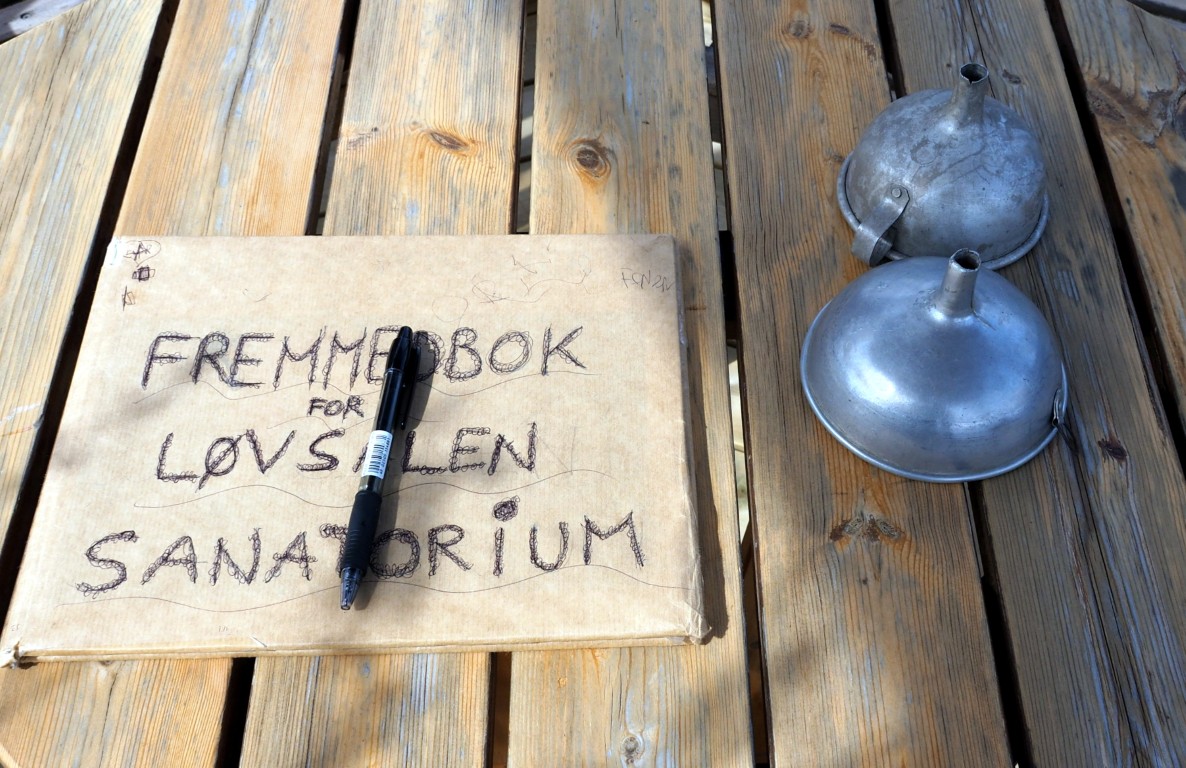 FREMMEDBOK
FOR
LØVSALEN
SANATORiUM